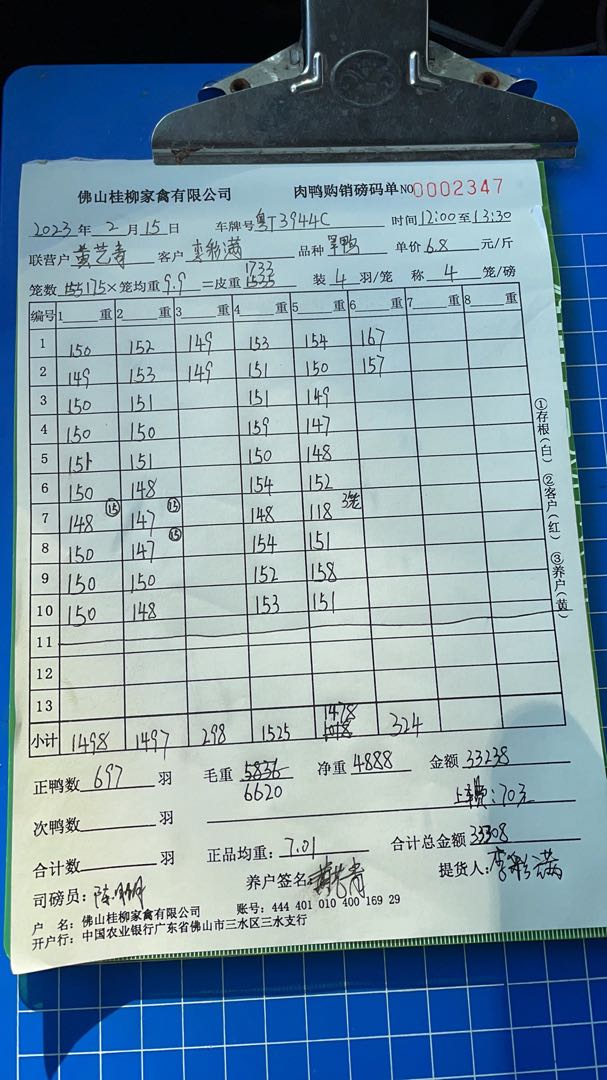 佛山桂柳家禽有限公司 肉鸭购销磅码单 NO 0002347
2023年2月15日 车牌号 粤T3944C 时间 12:00至13:30
联营户 黄艺青 客户 李彩满 品种 旱鸭 单价 6.8 元/斤
1733
笼数 175×笼均重 9.9 =皮重 1535 装 4 羽/笼 称 4 笼/磅
编号 1 重 2 重 3 重 4 重 5 重 6 重 7 重 8 重
1 150 152 149 153 154 167
2 149 153 149 151 150 157
3 150 151 151 149
4 150 150 159 147
5 151 151 150 148
6 150 148 154 152
7 148 ⑮ 147 ⑮ 148 118 3笼
8 150 147 ⑮ 154 151
9 150 150 152 158
10 150 148 153 151
11
12
13
1478
小计 1498 1497 298 1525 324
①存根(白) ②客户(红) ③养户(黄)
正鸭数 697 羽 毛重 5836 净重 4888 金额 33238
6620
上车费:70元
次鸭数 羽
合计数 羽 正品均重: 7.01 合计总金额 33308
司磅员: 养户签名: 黄艺青 提货人: 李彩满
户 名: 佛山桂柳家禽有限公司 账号: 444 401 010 400 169 29
开户行: 中国农业银行广东省佛山市三水区三水支行